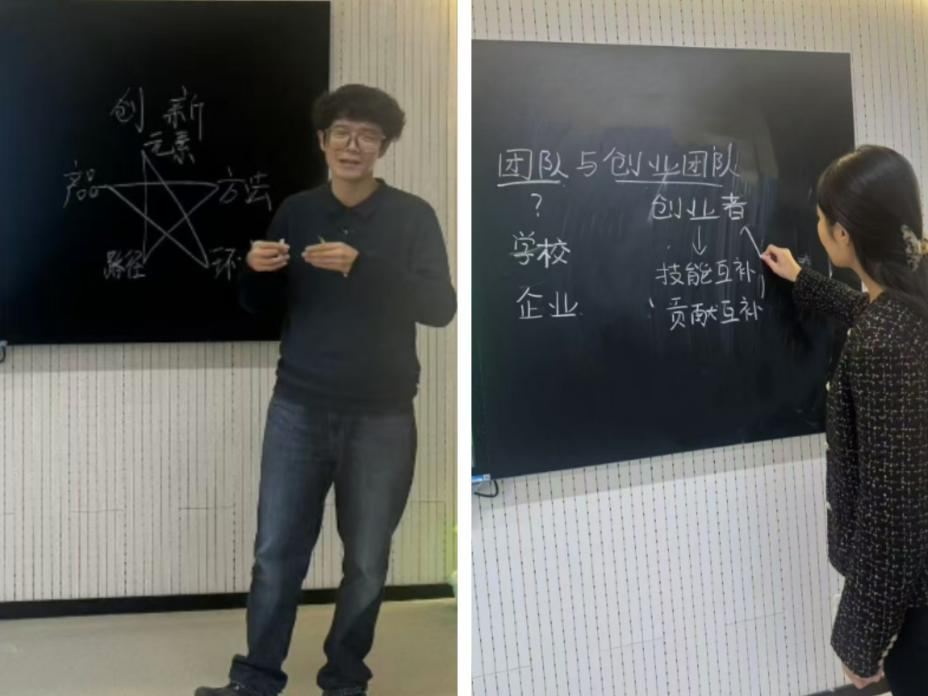 创新
元素
产品
方法
路径
环
团队与创业团队
? 创业者
↓
学校
技能互补
企业
贡献互补